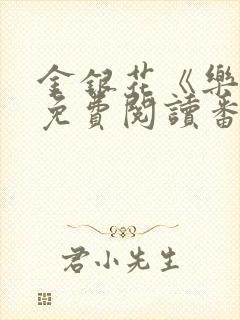 金銀花《樂
免費閱讀番
君小先生